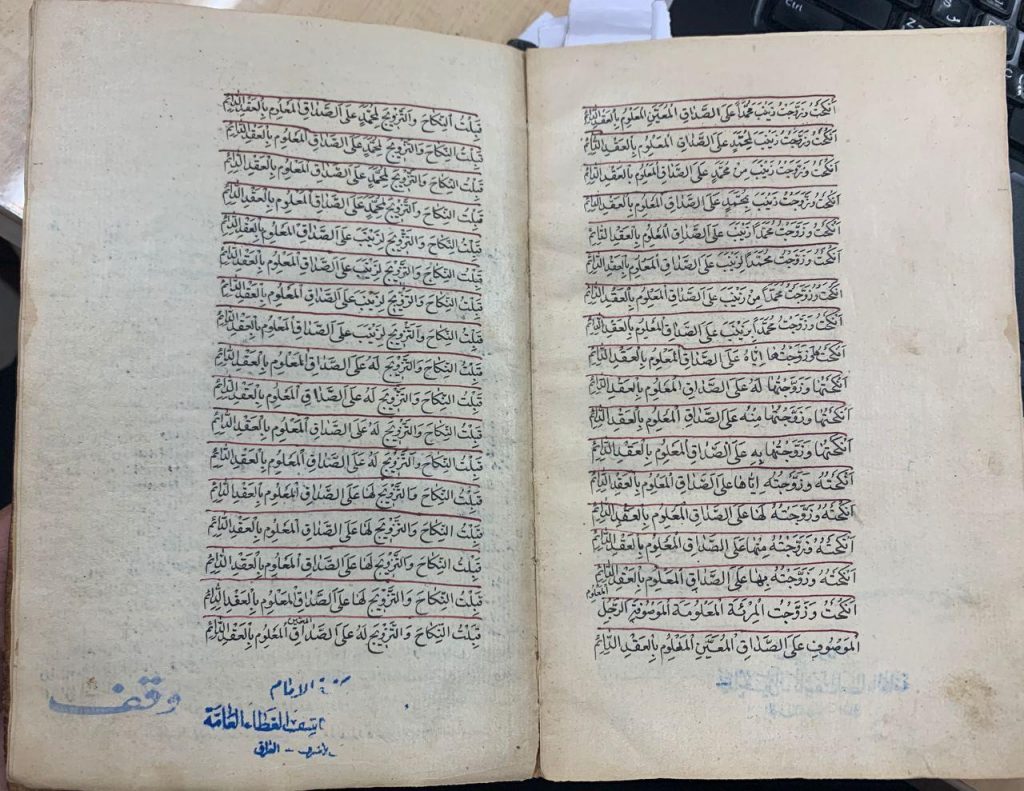 انكحت وزوجت زينب محمداً على الصداق المعين المعلوم بالعقد الدائم
انكحت وزوجت زينب لمحمد على الصداق المعلوم بالعقد الدائم
انكحت وزوجت زينب من محمد على الصداق المعلوم بالعقد الدائم
انكحت وزوجت زينب بمحمد على الصداق المعلوم بالعقد الدائم
انكحت وزوجت محمداً زينب على الصداق المعلوم بالعقد الدائم
انكحت وزوجت محمداً لزينب على الصداق المعلوم بالعقد الدائم
انكحت وزوجت محمداً من زينب على الصداق المعلوم بالعقد الدائم
انكحت وزوجت محمداً بزينب على الصداق المعلوم بالعقد الدائم
انكحتها وزوجتها اياه على الصداق المعلوم بالعقد الدائم
انكحتها وزوجتها له على الصداق المعلوم بالعقد الدائم
انكحتها وزوجتها منه على الصداق المعلوم بالعقد الدائم
انكحتها وزوجتها به على الصداق المعلوم بالعقد الدائم
انكحته وزوجته اياها على الصداق المعلوم بالعقد الدائم
انكحته وزوجته لها على الصداق المعلوم بالعقد الدائم
انكحته وزوجته منها على الصداق المعلوم بالعقد الدائم
انكحته وزوجته بها على الصداق المعلوم بالعقد الدائم
انكحت وزوجت المرئة المعلومة الموصوفة الرجل المعلوم
الموصوف على الصداق المعين المعلوم بالعقد الدائم
قبلت النكاح والتزويج لمحمد على الصداق المعلوم بالعقد الدائم
قبلت النكاح والتزويج لمحمد على الصداق المعلوم بالعقد الدائم
قبلت النكاح والتزويج لمحمد على الصداق المعلوم بالعقد الدائم
قبلت النكاح والتزويج لمحمد على الصداق المعلوم بالعقد الدائم
قبلت النكاح والتزويج لزينب على الصداق المعلوم بالعقد الدائم
قبلت النكاح والتزويج لزينب على الصداق المعلوم بالعقد الدائم
قبلت النكاح والتزويج لزينب على الصداق المعلوم بالعقد الدائم
قبلت النكاح والتزويج لزينب على الصداق المعلوم بالعقد الدائم
قبلت النكاح والتزويج له على الصداق المعلوم بالعقد الدائم
قبلت النكاح والتزويج له على الصداق المعلوم بالعقد الدائم
قبلت النكاح والتزويج له على الصداق المعلوم بالعقد الدائم
قبلت النكاح والتزويج له على الصداق المعلوم بالعقد الدائم
قبلت النكاح والتزويج لها على الصداق المعلوم بالعقد الدائم
قبلت النكاح والتزويج لها على الصداق المعلوم بالعقد الدائم
قبلت النكاح والتزويج لها على الصداق المعلوم بالعقد الدائم
قبلت النكاح والتزويج لها على الصداق المعلوم بالعقد الدائم
قبلت النكاح والتزويج له على الصداق المعين المعلوم بالعقد الدائم
وقف
الامام
كاشف الغطاء العامة
العراق